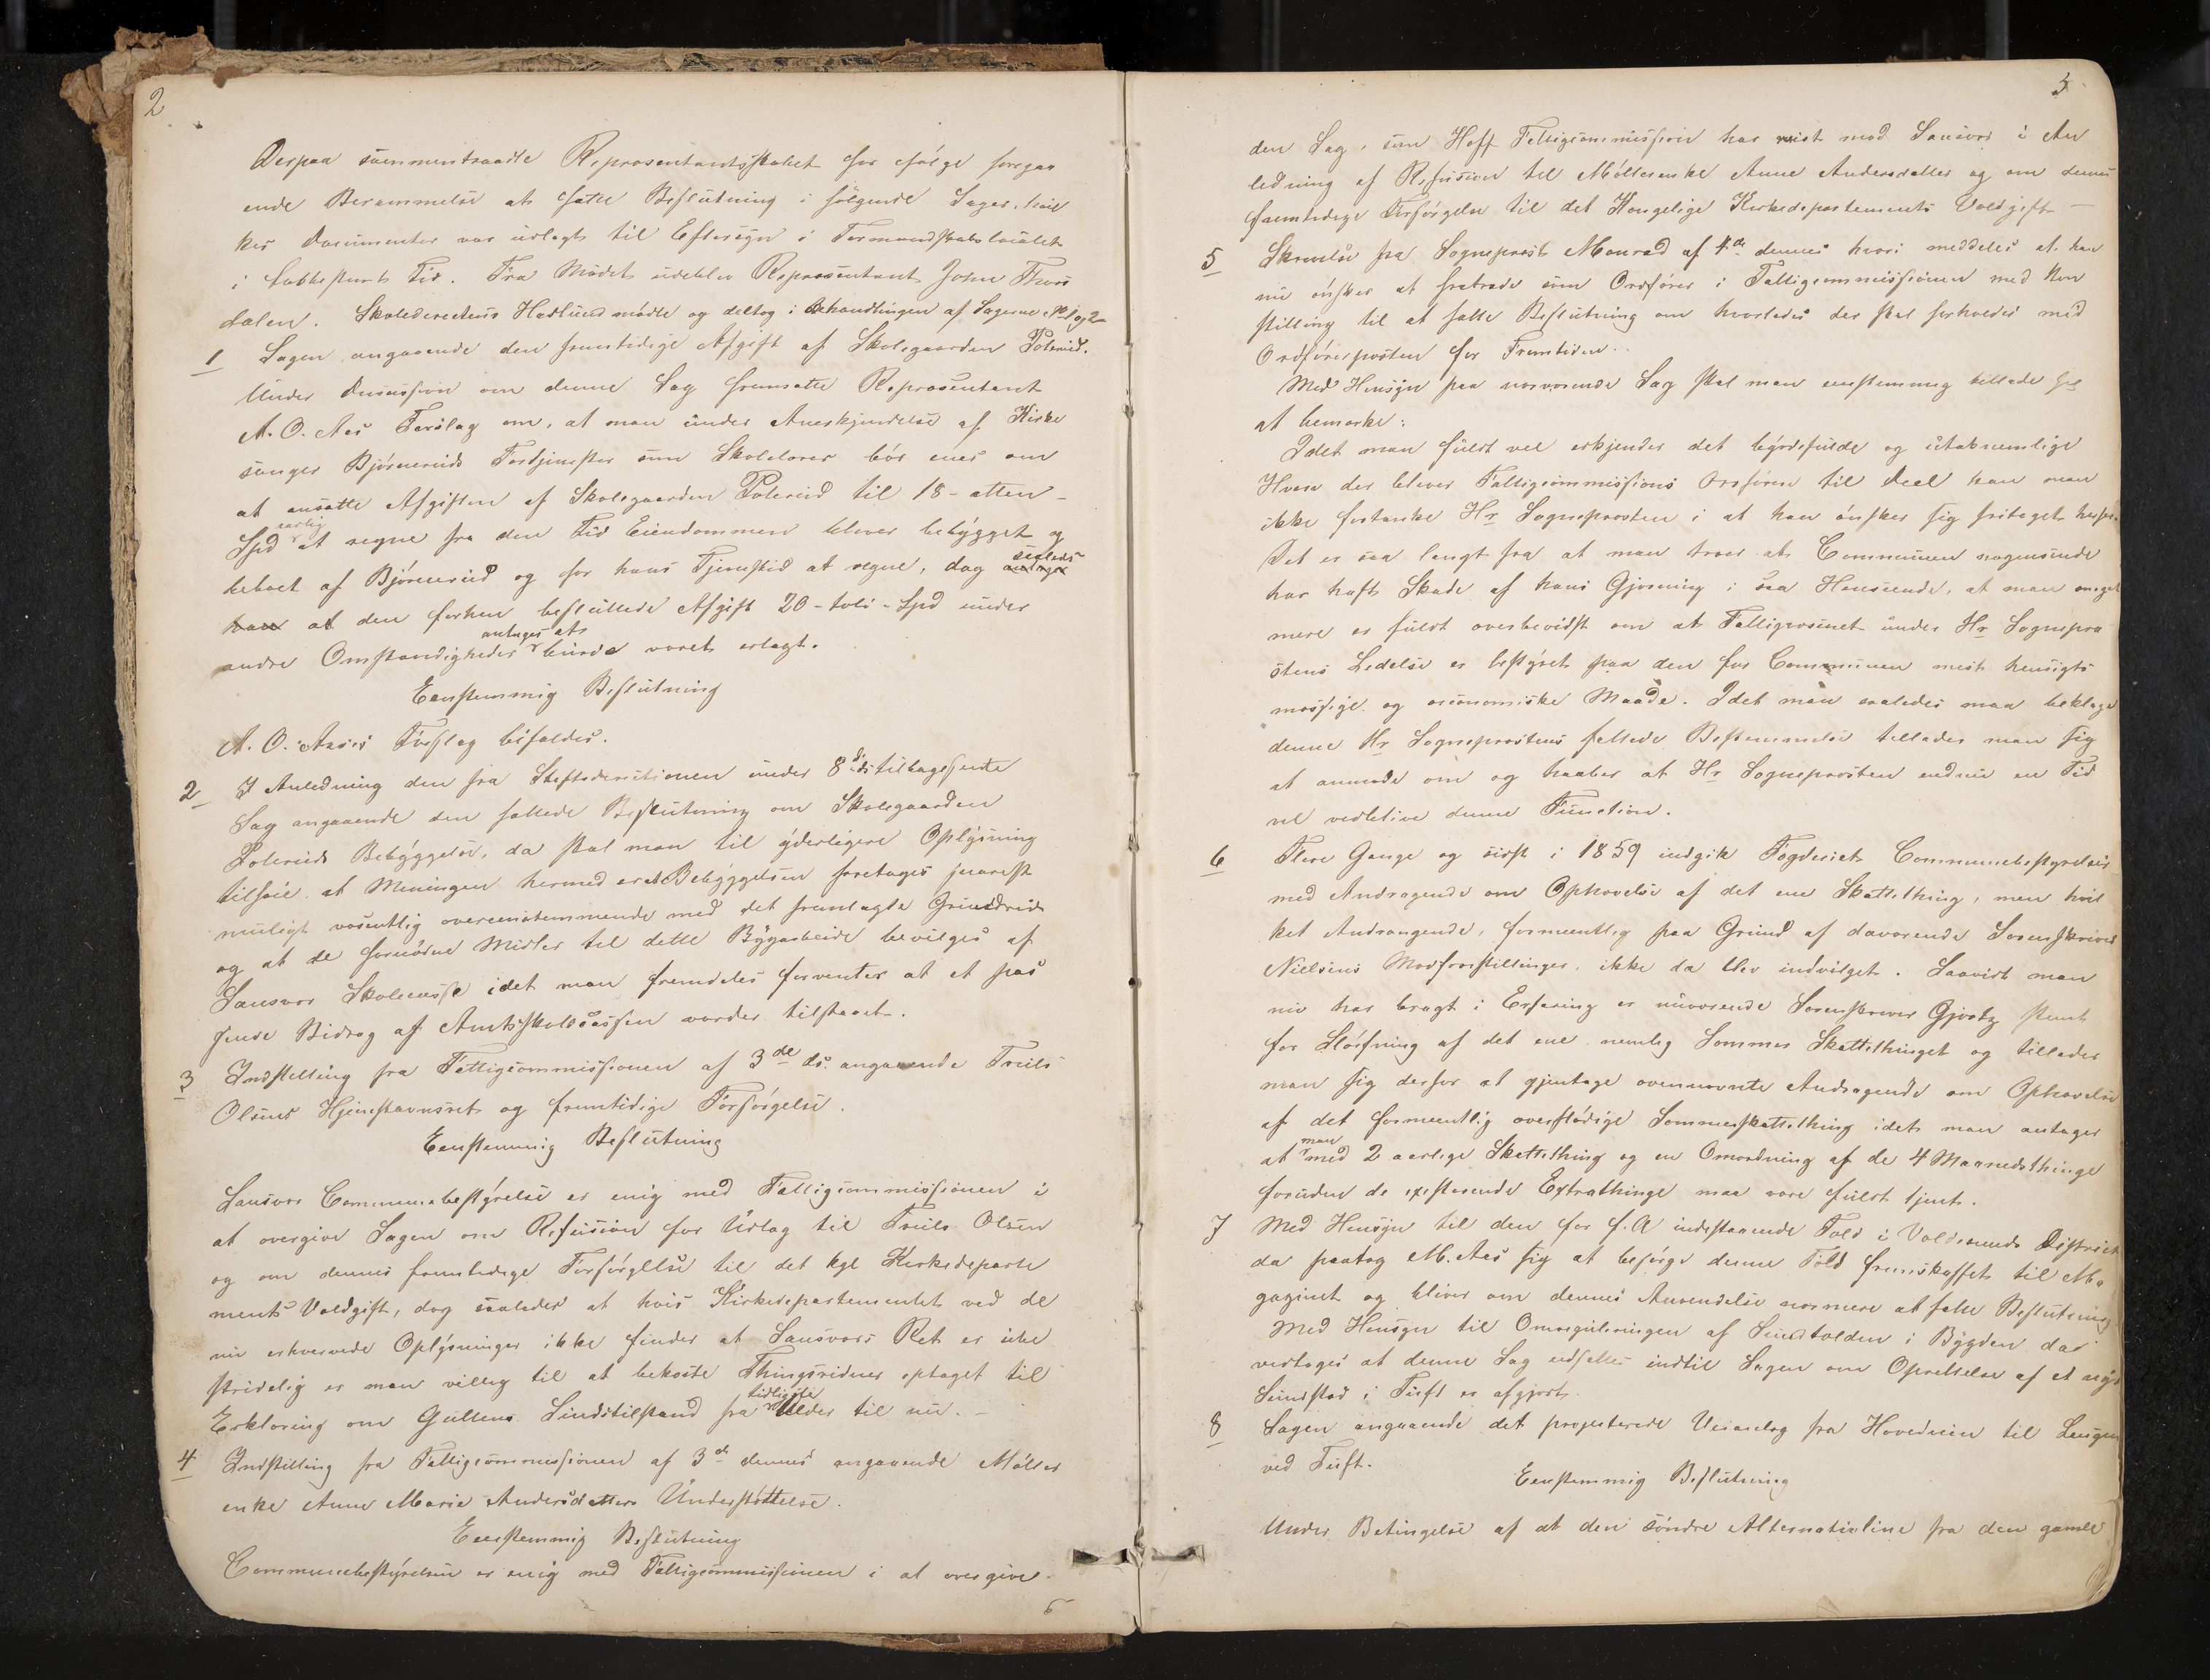 2
Derpaa sammentraadte Repræsentantskabet for ifølge foregaa
ende Berammelse at fatte Beslutning i følgende Sager, hvil
kes Documenter var udlagt til Eftersyn i Formandskabslocalet
i lovbestemt Tid. Fra Mødet udeblev Repræsentant John Thors
dalen. Skoledirecteur Hadlund mødte og deltog i Behandlingen af Sagerne No 1 og 2
1 Sagen angaaende den fremtidige Afgift af Skolegaarden Polenid.
Under Discussion om denne Sag fremsatte Repræsentant
A. O. Aas Forslag om, at man under Anerkjendelse af Kirke
sanger Bjørneruds Fortjenester som Skolelærer bør enes om
at ansætte Afgiften af Skolegaarden til 18 - atten -
Spd aarlig at regne fra den Tid Eiendommen bliver bebygget og
beboet af Bjørnerud og for hans Tjenstid at regne, dog saaledes
at den forhen besluttede Afgift 20 - tolv - Spd under
andre Omstændigheder antages at burde været erlagt.
Eenstemmig Beslutning
A. O. Aases Forslag bifaldes.
2 I Anledning den fra Stiftsdirectionen under 8de ds tilbagesendte
Sag angaaende den fattede Beslutning om Skolegaarden
Bebyggelse, da skal man til yderligere Oplysning
tilføie, at Meningen hermed er at Bebyggelsen foretages snarest
muligt væsentlig overeensstemmende med det fremlagte Grundrids
og at de fornødne Midler til dette Bygarbeide bevilges af
Sansvær Skolecasse idet man fremdeles forventer at et pas
sende Bidrag af Amtsskolecassen vorder tilstaaet.
3 Indstilling fra Fattigcommissionen af 3de ds. angaaende Truls
Olsens Hjemstavnsret og fremtidige Forsørgelse.
Eenstemmig Beslutning
Sansvær Communebestyrelse er enig med Fattigcommissionen i
at overgive Sagen om Refusion for Udlæg til Truls Olsen
og om dennes fremtidige Forsørgelse til det kgl Kirkedeparte
ments Voldgift, dog saaledes at hvis Kirkedepartementet ved de
nu erhvervede Oplysninger ikke finder at Sansværs Ret er ube
stridelig er man villig til at bekoste Thingsvidner optaget til
Erklæring om Guttens Sindstilstand fra tidligste Alder til nu. -
4 Indstilling fra Fattigcommissionen af 3de dennes angaaende Møller
enke Anne Marie Andersdatters Understøttelse.
Eenstemmig Beslutning
Communebestyrelsen er enig med Fattigcommissionen i at overgive
3
den Sag, som Hoff Fattigcommission har reist mod Sansvær i An
ledning af Refusion til Møllerenke Anne Andersdatter og om dennes
fremtidige Forsørgelse til det Kongelige Kirkedepartements Voldgift -
5 Skrivelse fra Sogneprest Monrad af 4de dennes hvori meddeles at han
nu ønsker at fratræde som Ordfører i Fattigcommissionen med Hen
stilling til at fatte Beslutning om hvorledes der skal forholdes med
Ordførerposten for Fremtiden.
Med Hensyn paa nærværende Sag skal man eenstemmig tillade sig
at bemærke:
Idet man fuldt vel erkjender det byrdefulde og utaknemlige
Hverv der bliver Fattigcommissions Ordfører til Deel kan man
ikke fortænke Hr Sognepresten i at han ønsker sig fritaget herfor.
Det er saa langt fra at man troer at Communen nogensinde
har havt Skade af hans Gjerning i saa Henseende, at man meget
mere er fuldt overbevidst om at Fattigvæsenet under Hr Sognepre
stens Ledelse er bestyret paa den for Communen mest hensigts
mæssige og øconomiske Maade. Idet man saaledes maa beklage
denne Hr Sogneprestens fattede Bestemmelse tillader man sig
at anmode om og haaber at Hr Sognepresten endnu en Tid
vil vedblive denne Function.
6 Flere Gange og sidst i 1859 indgik Fogderiets Communebestyrelser
med Andragende om Ophævelse af det ene Skattething, men hvil
ket Andragende, formeentlig paa Grund af daværende Sorenskriver
Nielsens Modforestillinger, ikke da blev indvilget. Saavidt man
nu har bragt i Erfaring er nuværende Sorenskriver Gjertz stemt
for Sløifning af det ene nemlig Sommer Skattethinget og tillader
man sig derfor at gjentage ovennævnte Andragende om Ophævelse
af det formeentlig overflødige Sommerskattething idet man antager
at man med 2 aarlige Skattething og en Omordning af de 4 Maanedsthinge
foruden de existerende Extrathinge maa være fuldt tjent.
7 Med Hensyn til den for f. A indestaaende Told i District
da paatog M. Aas sig at besørge denne Told fremskaffet til Ma
gazinet og bliver om dennes Anvendelse nærmere at fatte Beslutning
Med Hensyn til Omreguleringen af Sundtolden i Bygden da
vedtages at denne Sag udsættes indtil Sagen om Oprettelse af et nyt
Sundsted i Tuft er afgjort.
8 Sagen angaaende det projecterede Veianlæg fra Hovedveien til Laugen
ved Tuft.
Eenstemmig Beslutning
Under Betingelse af at den søndre Alternativlinie fra den gamle